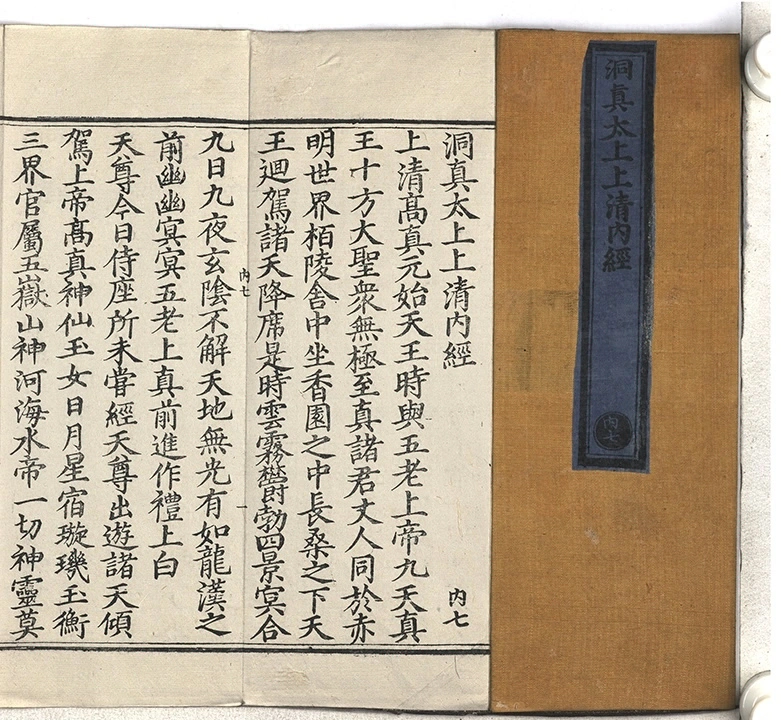 洞真太上上清內經
內七
洞真太上上清內經
內七
上清髙真元始天王時與五老上帝九天真
王十方大聖衆無極至真諸君丈人同於赤
明世界栢陵舍中坐香園之中長桑之下天
王廻駕諸天降席是時雲霧欝勃四景冥合
內七
九日九夜玄陰不解天地無光有如龍漢之
前幽幽冥冥五老上真前進作禮上白
天尊今日侍座所未嘗經天尊出遊諸天傾
駕上帝髙真神仙玉女日月星宿璇璣玉衡
三界官屬五嶽山神河海水帝一切神靈莫